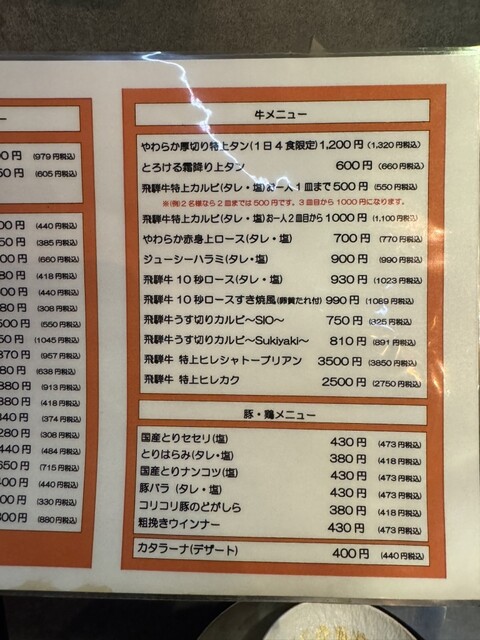 牛メニュー
やわらか厚切り特上タン(1日4食限定) 1,200円 (1,320円税込)
とろける霜降り上タン 600円 (660円税込)
飛騨牛特上カルビ(タレ・塩)お一人1皿まで 500円 (550円税込)
※(例)2名様なら2皿までは500円です。3皿目から1000円になります。
飛騨牛特上カルビ(タレ・塩)お一人2皿目から 1000円 (1,100円税込)
やわらか赤身上ロース(タレ・塩) 700円 (770円税込)
ジューシーハラミ(タレ・塩) 900円 (990円税込)
飛騨牛10秒ロース(タレ・塩) 930円 (1023円税込)
飛騨牛10秒ロースすき焼風(卵黄たれ付) 990円 (1089円税込)
飛騨牛うす切りカルビ～SIO～ 750円 (825円税込)
飛騨牛うす切りカルビ～Sukiyaki～ 810円 (891円税込)
飛騨牛 特上ヒレシャトーブリアン 3500円 (3850円税込)
飛騨牛 特上ヒレカク 2500円 (2750円税込)
豚・鶏メニュー
国産とりセセリ(塩) 430円 (473円税込)
とりはらみ(タレ・塩) 380円 (418円税込)
国産とりナンコツ(塩) 430円 (473円税込)
豚バラ (タレ・塩) 430円 (473円税込)
コリコリ豚のどがしら 380円 (418円税込)
粗挽きウインナー 430円 (473円税込)
カタラーナ(デザート) 400円 (440円税込)
(979円税込)
(605円税込)
(440円税込)
(385円税込)
(660円税込)
(418円税込)
(440円税込)
(308円税込)
(550円税込)
(1045円税込)
(957円税込)
(638円税込)
(913円税込)
(418円税込)
(374円税込)
(308円税込)
(484円税込)
(715円税込)
(440円税込)
(330円税込)
(880円税込)